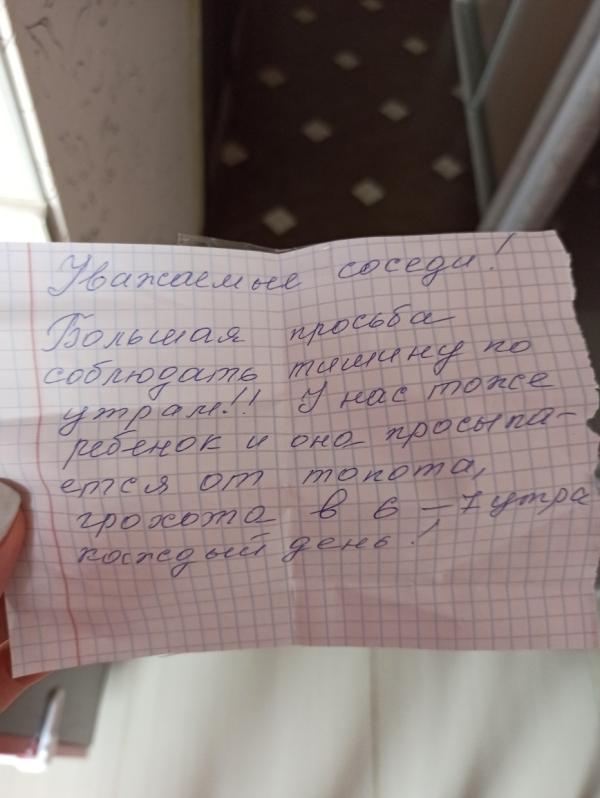 Уважаемые соседи!
Большая просьба
соблюдать тишину по
утрам!! У нас тоже
ребенок и она просыпа-
ется от топота,
грохота в 6-7 утра
каждый день!